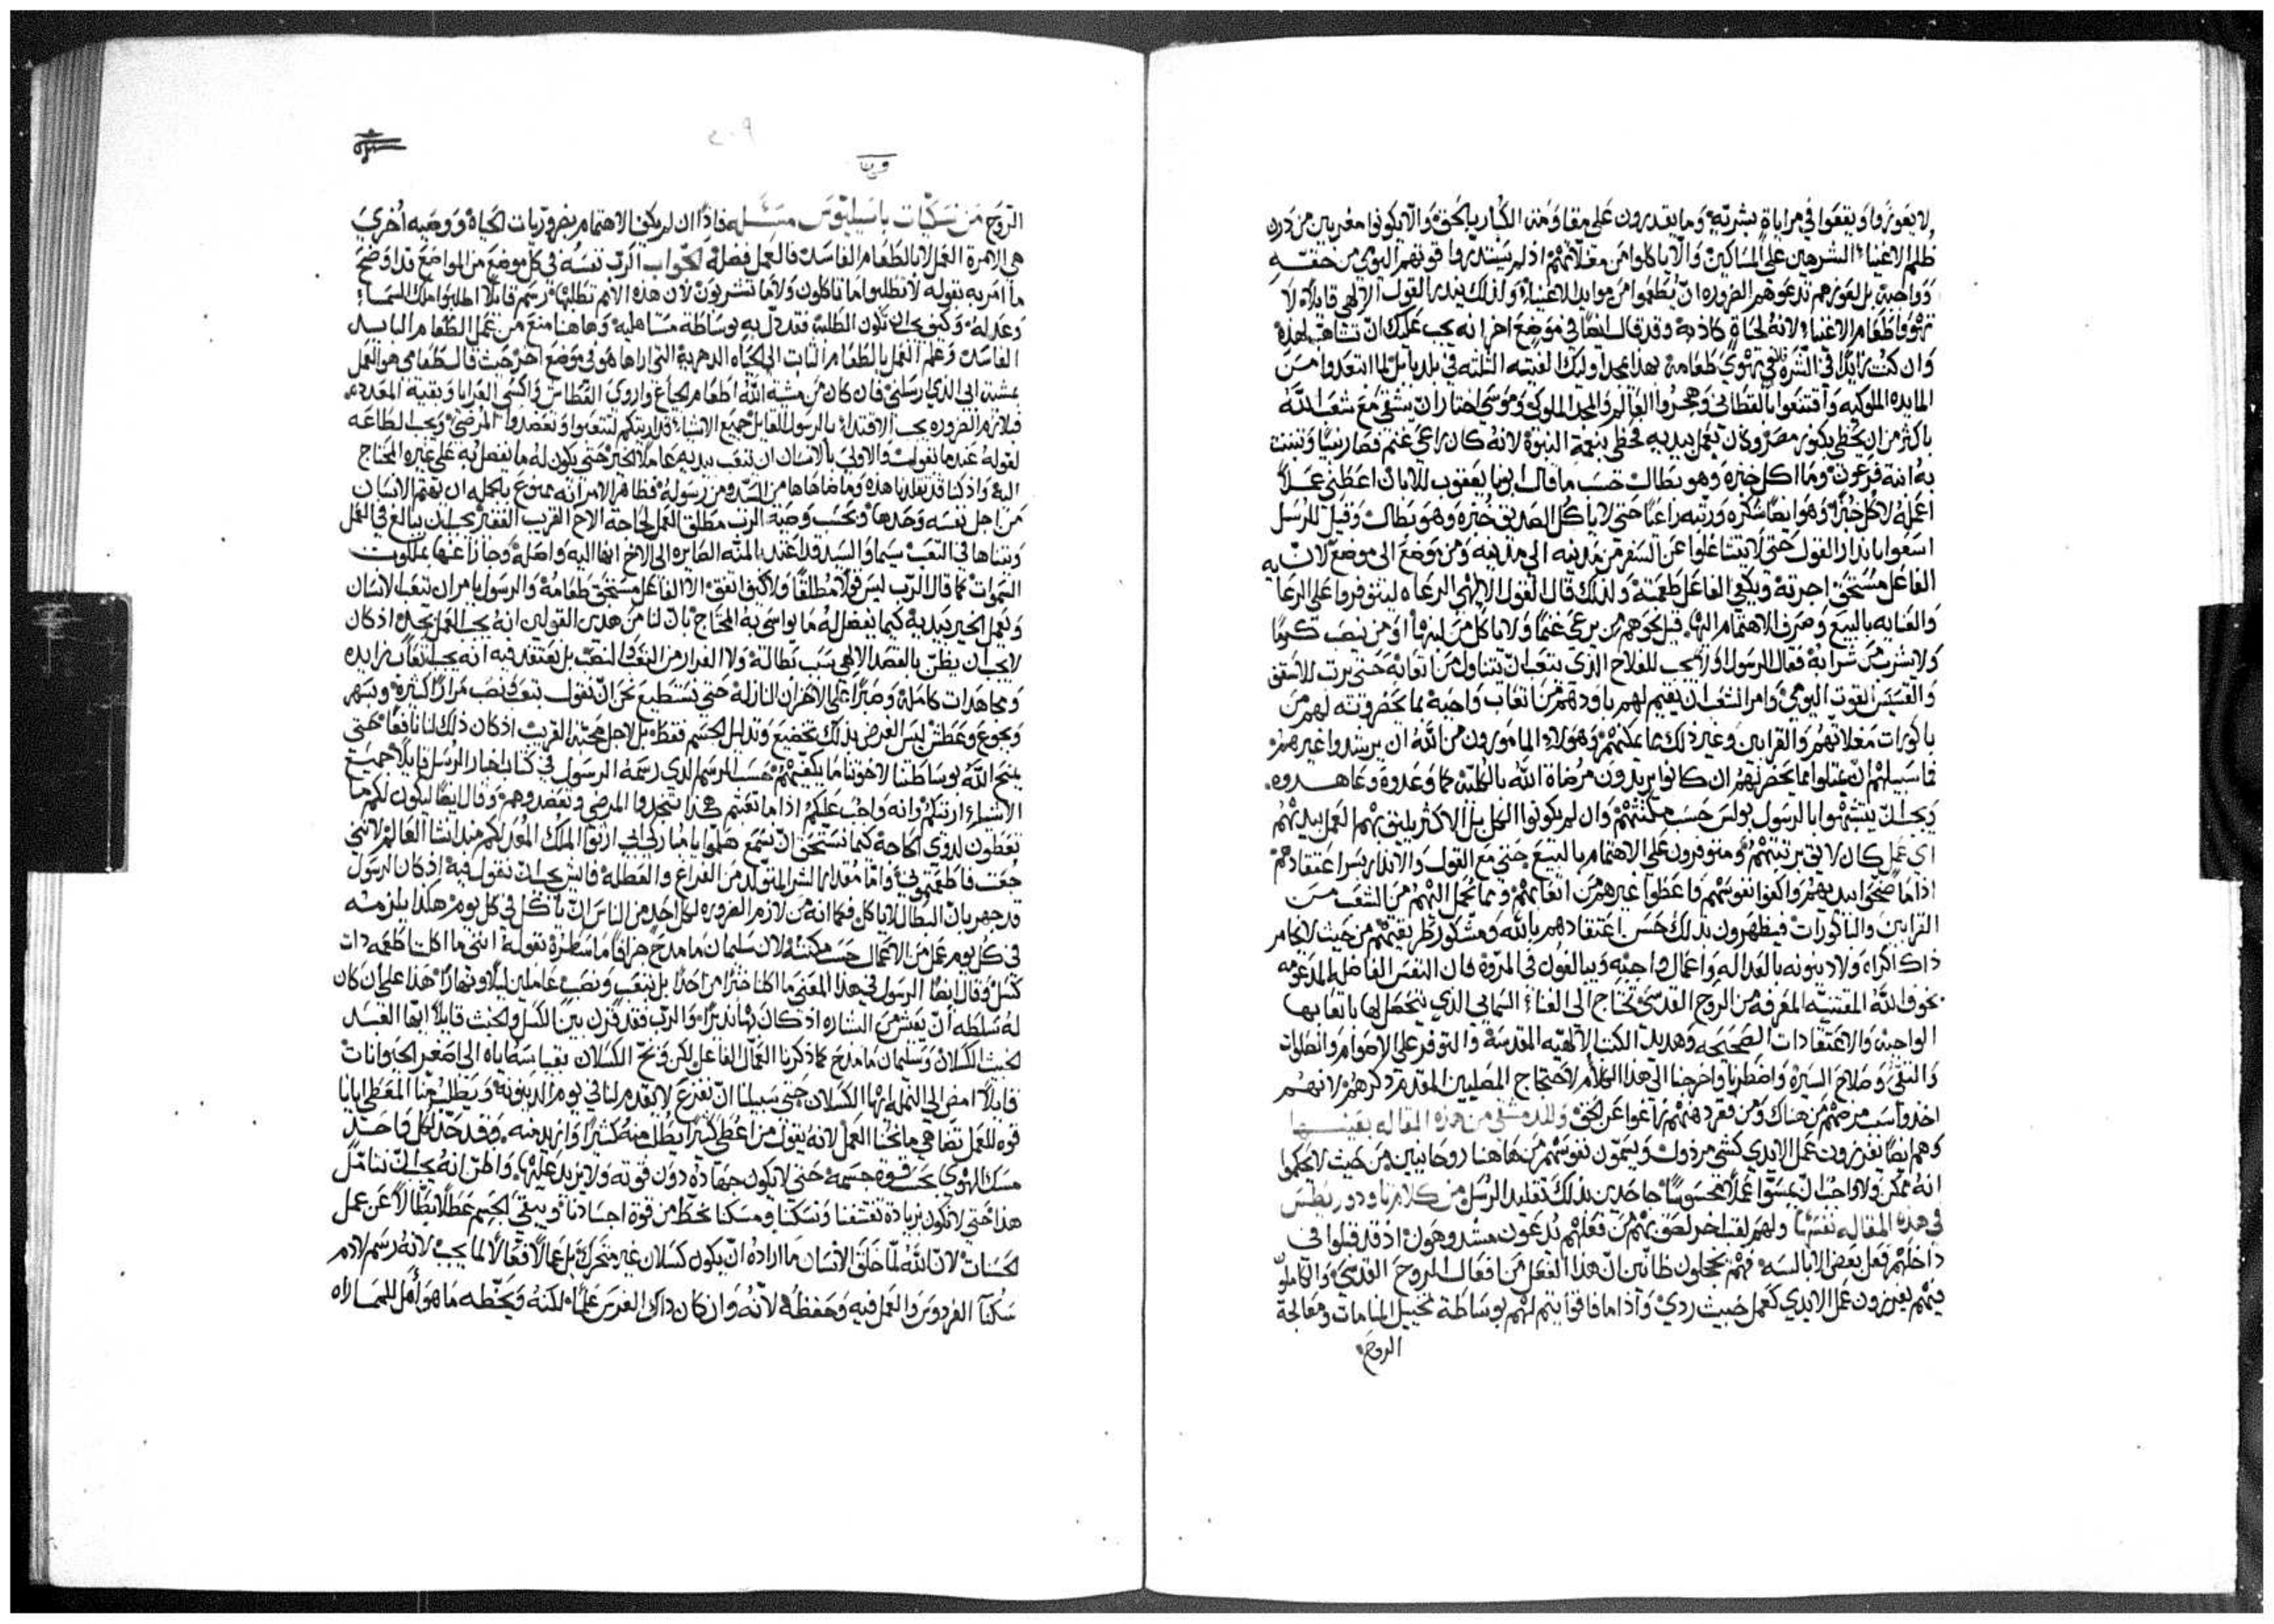 لا يعوزوا ويقعوا في مراياة بشرية وما يقدرون على مقاومة الكبار بالحق والا يكونوا معريين من درن
ظلم الاغنياء الشرهين على المساكين والا ياكلوا من مغلاتهم اذ لم قوتهم اليومي من حقته
دواجبة بل لعوزهم تدعوهم الضروره ان يطعموا من موايد الاغنياء ولذلك يندر القول الالهي قايلا لا
تهوو طعام الاغنياء لانه لحياة كاذبة وقد قال ايضا في موضع اخر انه يجب عليك ان لهذه
وان كنت زايدا في الشره فلا تهوى طعامه بهذا اوليك الفتية الثلثه في بلد بابل لما ابتعدوا من
المايده الملوكيه واقتنعوا بالقطاني وهجروا العالم والمجد الملوكي وموسى احتار ان يشقى مع شعب الله
باكثر من ان يحظى بكنوز مصر وكان يعمل بيديه فحظى بنعمة النبوة لانه كان راعي غنم فصار نبيا وتبنت
به ابنة فرعون وما اكل خبزه وهو بطال حسب ما قال ابونا يعقوب للابان اعطني عملا
اعمله لاكل خبزا وهو ايضا شكره ورتبه راعيا حتى لا ياكل الصديق خبزه وهو بطال وقيل للرسل
اسعوا بانذار القول حتى لا يتشاغلوا عن السفر من مدينه الى مدينه ومن موضع الى موضع لان
الفاعل مستحق اجرته ويكفي الفاعل طعمته ولذلك قال القول الالهي الرعاه ليتوفروا على الرعايه
والعنايه بالبيع وصرف الاهتمام اليها قيل نحوهم من يرعى غنما ولا ياكل من لبنها او من ينصب كرما
ولا يشرب من شرابه فقال الرسول او يجب للفلاح الذي يتعب ان يتناول من اتعابه حتى يرتب للاسقف
والقسيس القوت اليومي وامر الشعب ان يقيم لهم باودهم من اتعاب واجبة مما يحضرونه لهم من
باكورات مغلاتهم والقرابين وغير ذلك مما يمكنهم وهولاء المامورون من الله ان يرشدوا غيرهم
فاسبيلهم ان يمتلوا مما يحضر لهم ان كانوا يريدون مرضاة الله بالكلية كما وعدوه وعاهدوه
ويجب ان يتشبهوا بالرسول بولس حسب مكنتهم وان لم يكونوا الكل بل الاكثر يليق بهم العمل بيديهم
اي عمل كان لايق برتبتهم ومتوفرون على الاهتمام بالبيع حتى مع القول والانذار يسر اعتقادهم
اذا ما ايديهم واكفوا نفوسهم واعطوا غيرهم من اتعابهم ومما يحمل اليهم من الشعب من
القرابين والباكورات فيظهرون بذلك حسن اعتقادهم بالله ومشكور طريقتهم من حيث لا يجامر
ذاك اكراه ولا دينونه بالعداله واعمال واجبه فان النفس الفاضله المدعومه
بخوف الله المقتنيه المعرفه من الروح القدسي تحتاج الى الغناء السماني الذي يتحصل لها باتعابها
الواجبة والاعتقادات الصحيحه وهديد الكتب الالهيه المقدسة والتوفر على الاصوام وانطلوات
والتقى وصلاح السيره واضطرنا واخرجنا الى هذا الكلام لاحتجاج المصليين المقدم ذكرهم لانهم
اخذوا من هناك ومن فقرد زاغوا عن الحق وللدمشقي من هذه المقاله بعينها
وهم ايضا يفرزون عمل الايدي كشي مرذول ويسمون نفوسهم من هاهنا روحانيين من حيث لا يحكموا
انه ممكن ولا واجب ان يمسوا عملا محسوسا جاحدين بذلك تقليد الرسل من كلام تاودوريطس
في هذه المقاله نفسها ولهم لقب اخر لصق بهم من فعلهم يدعون مشدوهون اذ قد قبلوا في
داخلهم فعل بعض الابالسه فهم يجهلون ظانين ان هذا الفعل من افعال الروح القدسي والكاملون
فيهم يفرزون عمل الايدي كعمل خبيث ردي واذا ما فاقوا يتم لهم بوساطة تخييل المنامات ومعالجة
الروح
٢٠٩
الروح من نسكيات باسيليوس مسئله فاذا ان لم يكن الاهتمام بضروريات الحياة ووصيه اخرى
هي الامره العمل لا بالطعام الفاسد فالعمل فضلة الجواب الرب نفسه في كل موضع من المواضع قد اوضح
ما امر به بقوله لا تطلبوا ما تاكلون ولا ما تشربون لان هذه الامم تطلبها رسم قايلا اطلبوا ملك السماء
وعدله وكيف يجب ان تكون الطلبة فقد دل به بوساطة مستاهليه وهاهنا منع من عمل الطعام البايد
الفاسد وعلم العمل بالطعام الثابت الى الحياه الدهرية التي اراها هو في موضع اخر حيث قال طعامي هو العمل
بمشية ابي الذي ارسلني فان كان من مشية الله اطعام الجياع واروى العطاش واكسى العرايا وبقية المعدده
فبلازم الضروره يجب الاقتداء بالرسول القايل جميع الاشياء قد اريتكم لتتعبوا وتعضدوا المرضى ويجب الطاعه
لقوله عندما يقول والاولى بالانسان ان يتعب بيديه عاملا الخير حتى يكون له ما يفضل به على غيره المحتاج
اليه واذ كنا قد تقلدنا هذه وما ضاهاها من السيد ومن رسوله فظاهر الامر انه ممنوع بالجمله ان يهتم الانسان
من اجل نفسه وحدها وبحسب وصية الرب مطلق العمل لحاجة الاخ القريب الفقير يجب ان يبالغ في العمل
ويتناها في التعب سيما والسيد قد اعتد بالمنه الصايره الى الاخ انها اليه واصله وجازا عنها بملكوت
السموات كما قال الرب ليس قولا مطلقا ولا كيف اتفق الا الفاعل مستحق طعامه والرسول يامر ان يتعب الانسان
ويعمل الخير بيديه كيما يفضل له ما يواسي به المحتاج بان لنا من هذين القولين انه يجب العمل بجد اذ كان
لا يجب ان يظن بالقصد الالهي سبب بطالة ولا الفرار من التعب النصب بل يعتقد فيه انه يجب اتعاب زايده
ومجاهدات كاملة وصبرا على الاحزان النازلة حتى نستطيع نحن ان نقول بتعب ونصب مرارا كثيرة وبسهر
وبجوع وعطش ليس الغرض بذلك تخضيع وتدليل الجسم فقط بل لاجل محبة القريب اذ كان ذلك لنا نافعا حتى
يمنح الله بوساطتنا لاخوتنا ما يكفيهم حسب المرسم الذي رسمه الرسول في كتاب اخبار الرسل قايلا جميع
الاشياء اريتكم وانه واجب عليكم اذا ما تعبتم هكذا تنجدوا المرضى وتعضدوهم وقال ايضا ليكون لكم ما
تعطون لذوي الحاجة كيما نستحق ان نسمع هلموا يا مباركي ابي ارثوا الملك المعد لكم منذ انشا العالم لانني
جعت فاطعمتموني واما مقدار الشر المتولد من الفراغ والعطله فايش يجب ان نقول فيه اذ كان الرسول
قد جهر بان البطال لا ياكل فكما انه من لازم الضروره لكل احد من الناس ان ياكل في كل يوم هكذا يلزمه
في كل يوم عمل من الاعمال حسب مكنته لان سليمان ما مدح جزافا ما سطره بقوله انني ما اكلت اطعمه دات
كسل وقال ايضا الرسول في هذا المعنى ما اكلنا خبزا من احد بل بتعب ونصب عاملين ليلا ونهارا هذا على ان كان
له سلطه ان يعيش من البشاره اذ كان لها نذيرا والرب فقد قرن بين الكسل والخبث قايلا ايها العبد
الخبيث الكسلان وسليمان ما مدح كما ذكرنا العمال الفاعل لكن وبخ الكسلان بقياسه اياه الى اصغر الحيوانات
قايلا امض الى النمله ايها الكسلان حتى سبيلنا ان نفزع لا يقدم لنا في يوم الدينونة ويطلب منا المعطي ايانا
قوه للعمل تضاهي ما نحنا العمل لانه يقول من اعطي كثيرا يطلب منه كثيرا وازيد منه وقد حد لكل واحد
مسك الهوى بحسب قوة جسمه حتى لا يكون جهاده دون قوته ولا يزيد عليها واظن انه يجب ان نتامل
هذا حتى لا نكون بزيادة تقشفنا ونسكنا ومسكنا نحط من قوة اجسادنا ويبقى الجسم عطلا بطالا عن عمل
الحسنات لان الله لما خلق الانسان ما اراده ان يكون كسلان غير متحرك بل عمالا فعالا لما يجب لانه رسم لادم
سكنا الفردوس والعمل فيه وحفظه لانه وان كان ذاك الغرس علميا لكنه وبخطه ما هو اهل